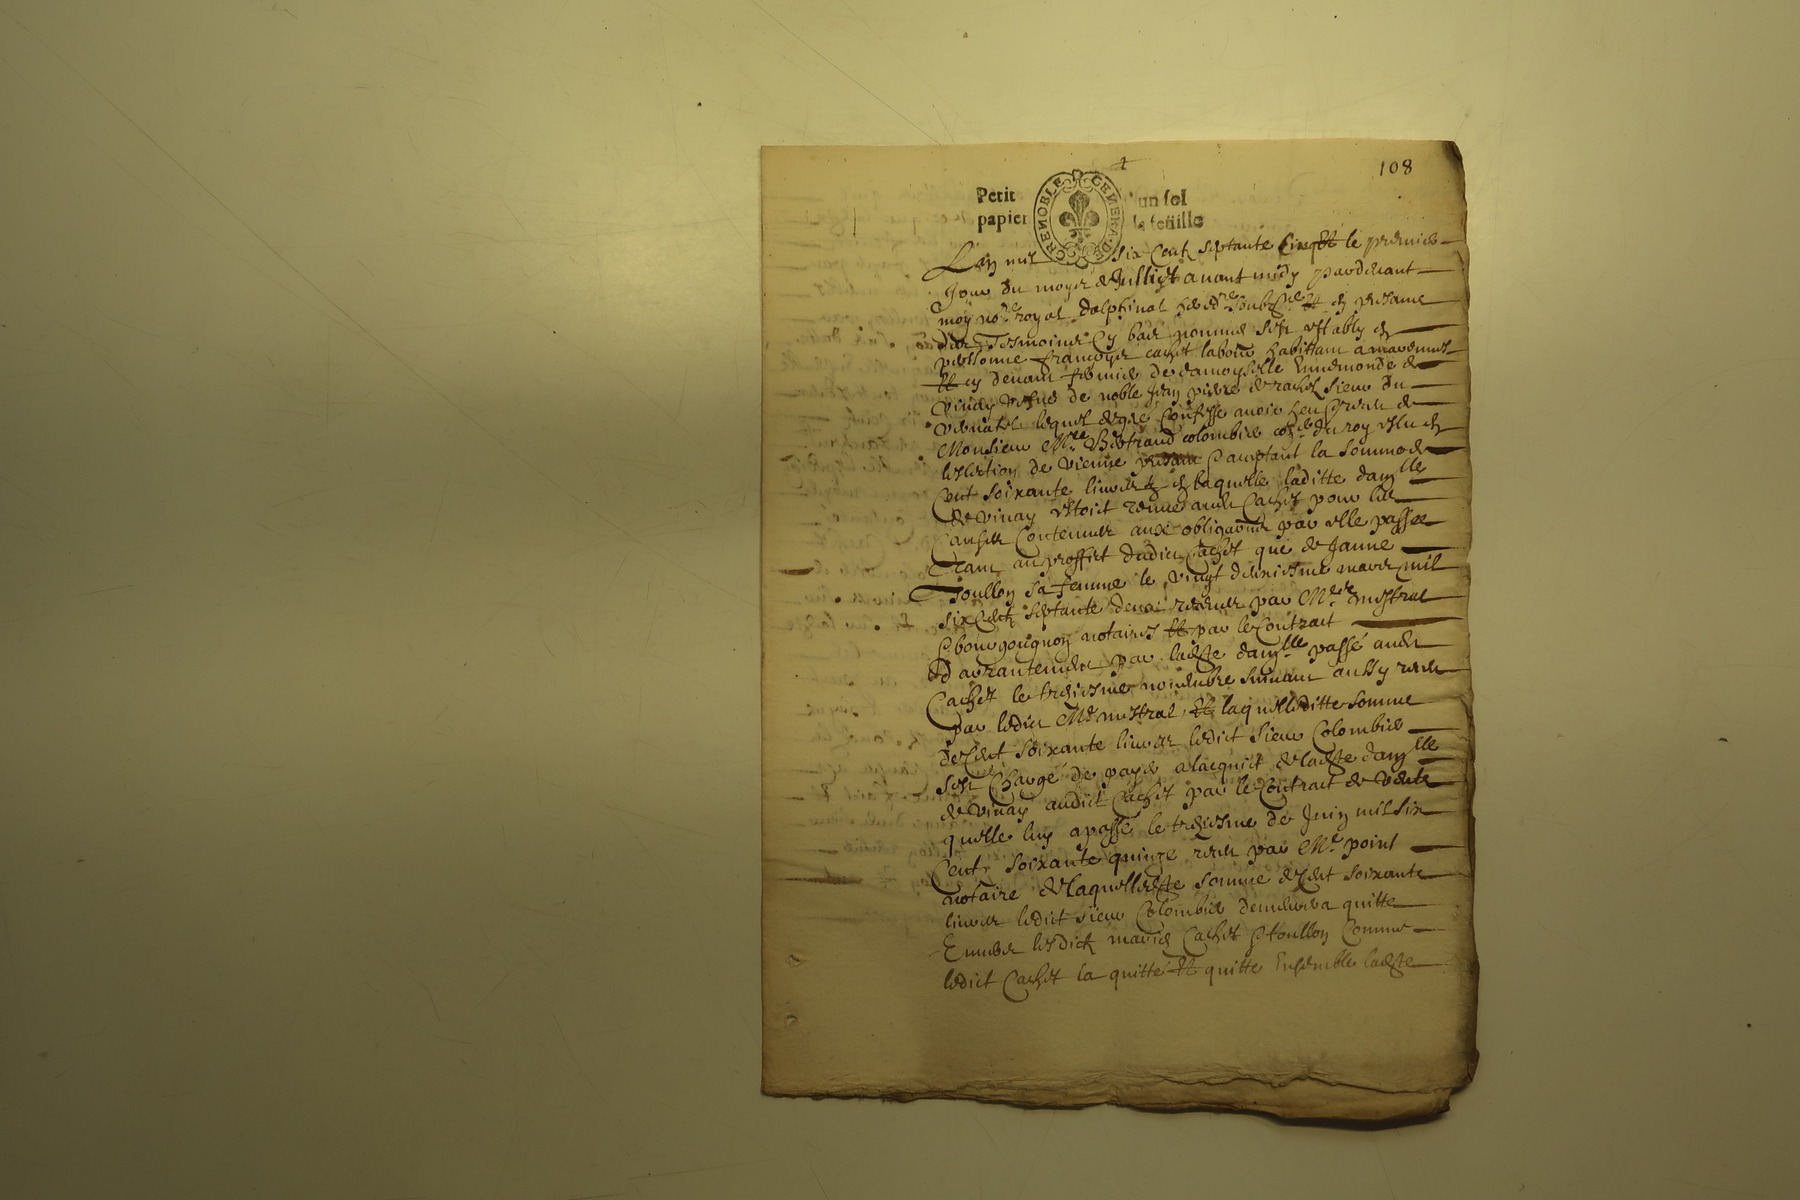 108
Petit un sol
papier la feuille
GRENOBLE GENERAL
L'an mil six Cent septante Cinq Et le premier
Jour du moys de Julliet avant midy pardevant
moy no.re royal dalphinal soub.ne Et en presance
des Tesmoins Cy bas nommes s'est estably en
personne françoys cachet labour habittant a
Et cy devant fermier de damoyselle Ennemonde de
Vinay vefve de noble Jean pierre de rachel sieur du
vernatel lequel de gré Confesse avoir heu et receu de
Monsieur M.re Bertrand colombier con.er du roy esleu en
leslection de vienne Comptant la somme de
Cent soixante livres en laquelle laditte dam.lle
de vinay estoit tenue audit Cachet pour les
Causes Contenues aux obligations par elle passee
Tant au proffict dudict Cachet que de Janne
Toullon sa femme le vingt deuxiesme mars mil
six Cent septante deux receues par M.re mistral
et bourgougnon notaires Et par le Contract
d'arrantement par ladite dam.lle passé audit
Cachet le treisiesme novembre suivant aussy receu
par ledict M.e mistral, Et laquelleditte somme
de Cent soixante livres ledict sieur Colombier
s'est Chargé de payer a lacquict de ladite dam.lle
de vinay audict Cachet par le Contract de vente
quelle luy a passé le treisiesme de Juin mil six
Cent soixante quinze receu par M.e point
notaire de laquelledite somme de Cent soixante
livres ledict sieur Colombier demeurera quitte
Envers lesdicts maries Cachet et toullon Comme
ledict Cachet la quitté Et quitte Ensemble ladite